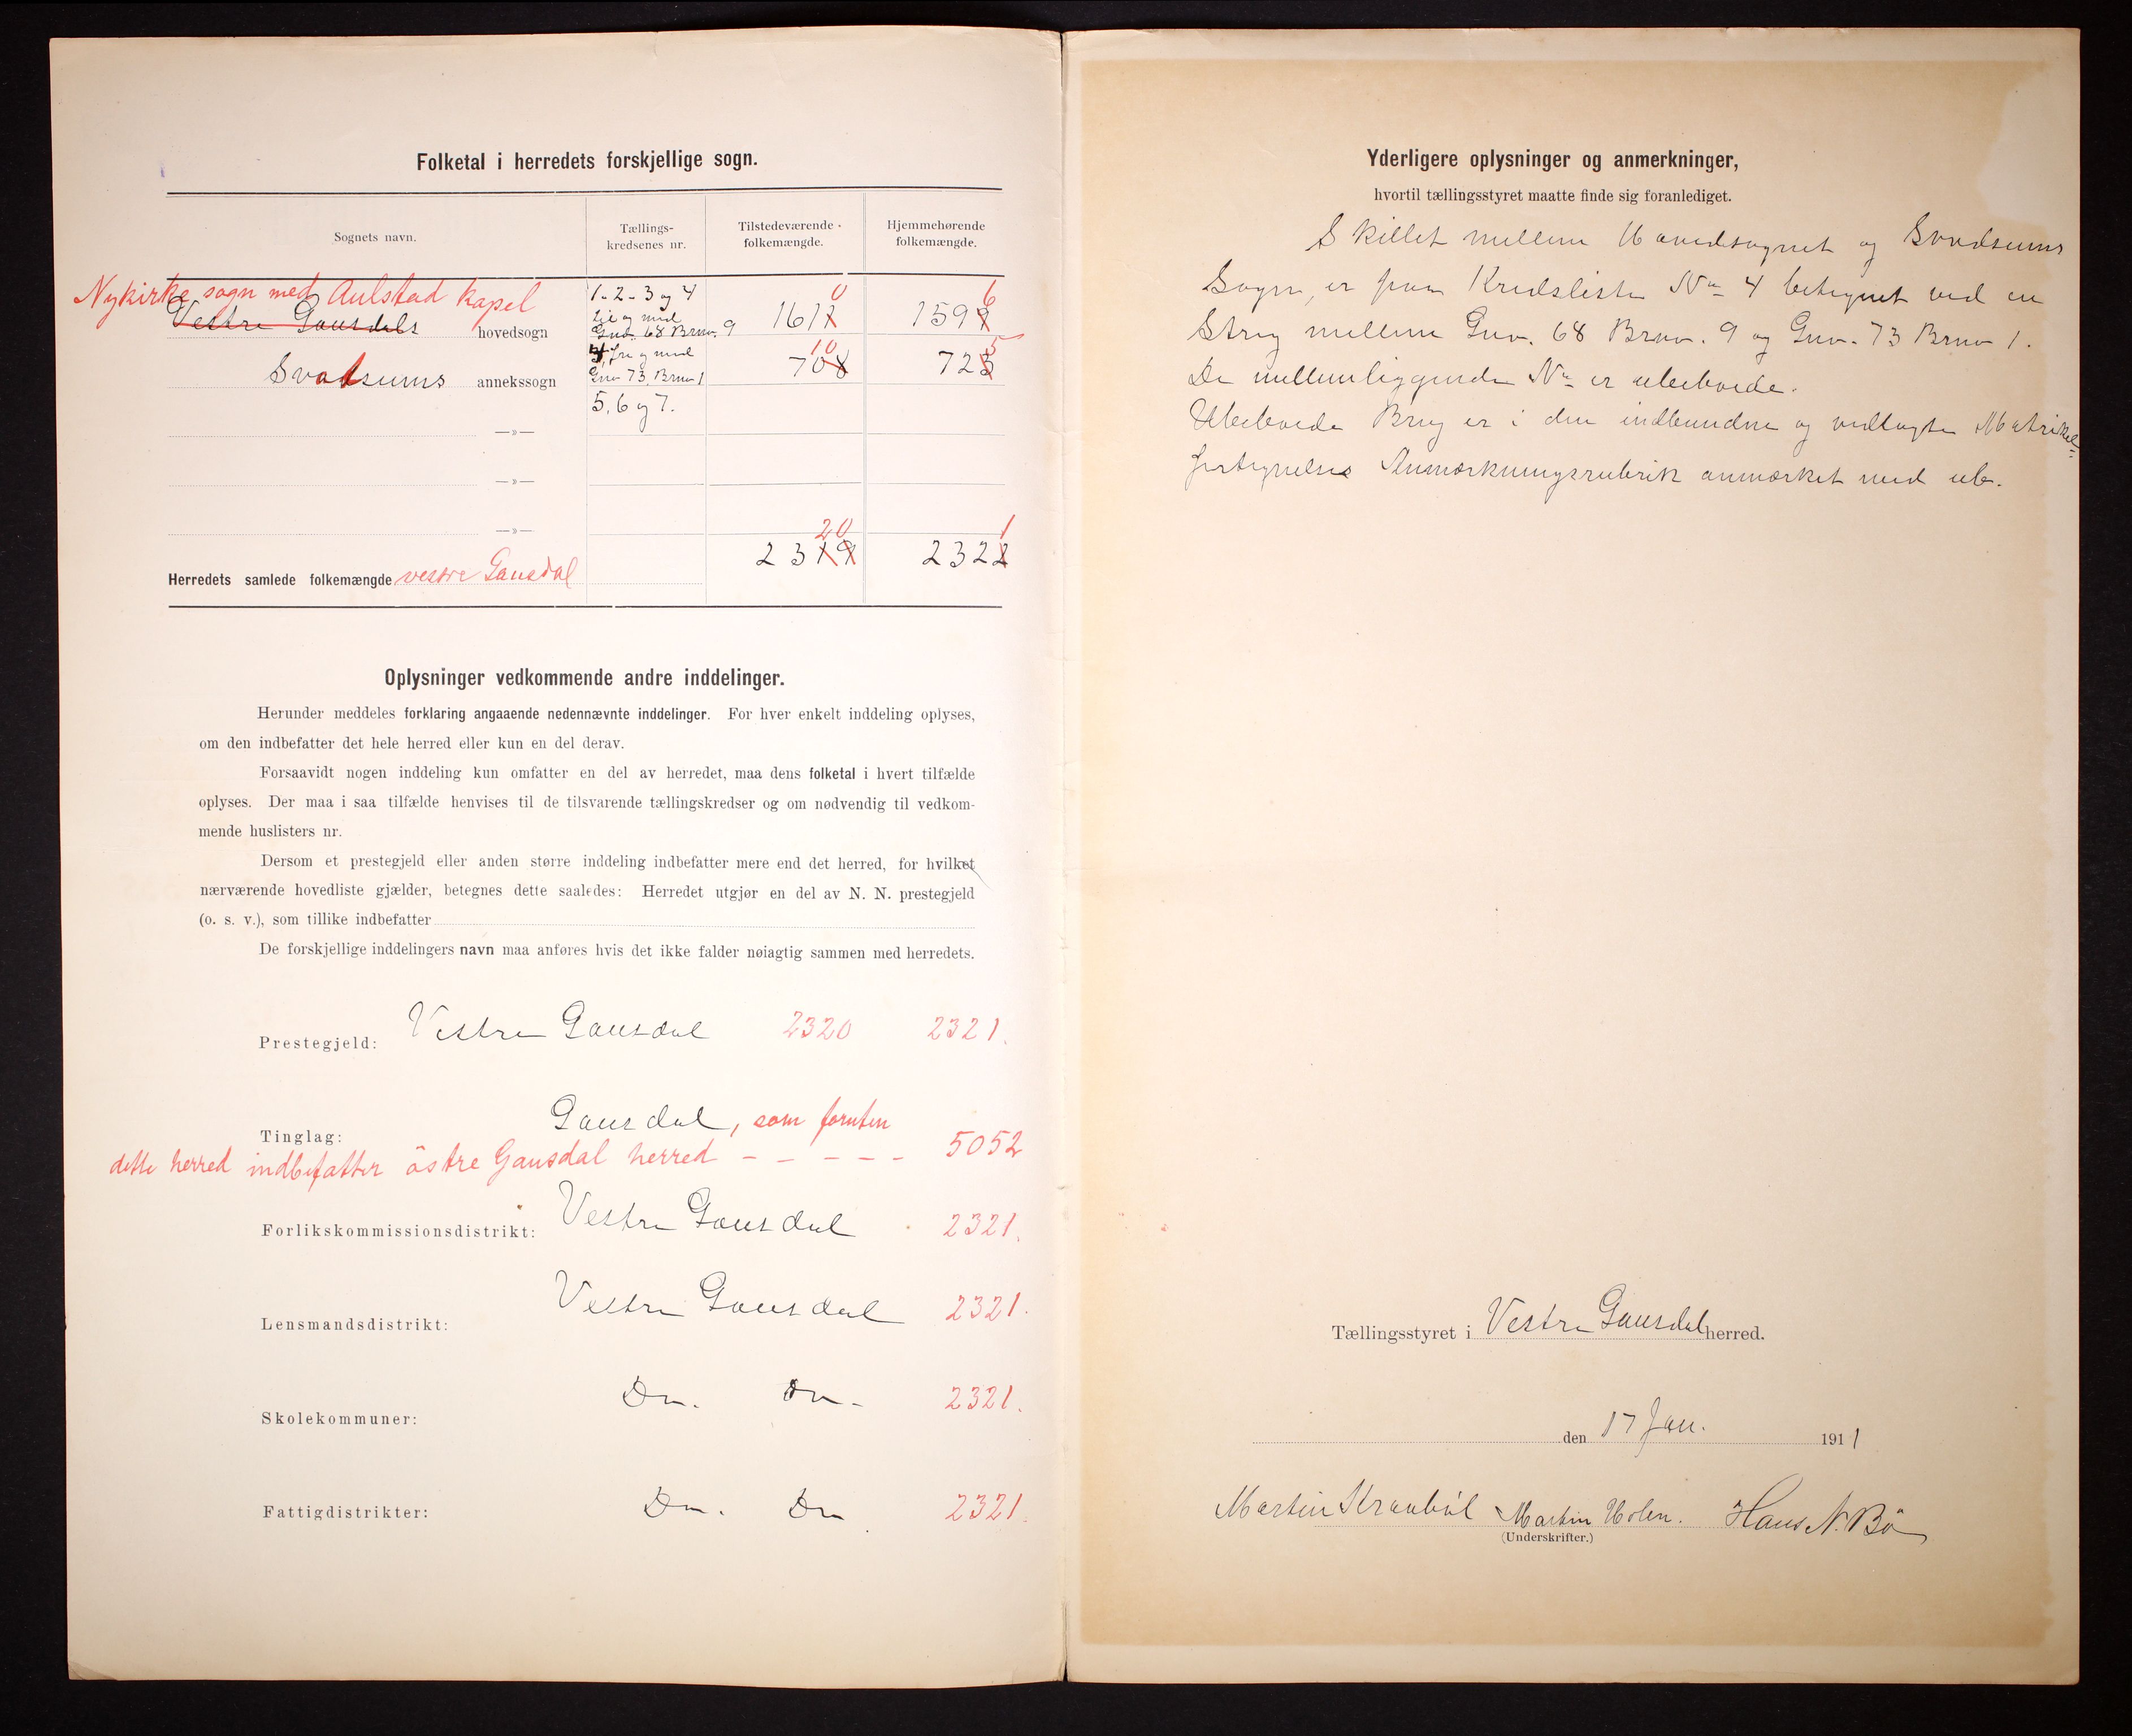 Folketal i herredets forskjellige sogn.
Sognets navn.
Tællings-
kredsenes nr.
Tilstedeværende
folkemængde.
Hjemmehørende
folkemængde.
Nykirke sogn med Aulstad kapel
Vestre Gausdals hovedsogn
1-2-3 og 4
til og med
Gnv. 68 Brnv. 9
1611 0
1599 6
Svatsums annekssogn
4, fra og med
Gnv 73, Brnv 1
5, 6 og 7.
708 10
723 5
—»—
—»—
—»—
Herredets samlede folkemængde vestre Gausdal
2319 20
2322 1
Oplysninger vedkommende andre inddelinger.
Herunder meddeles forklaring angaaende nedennævnte inddelinger. For hver enkelt inddeling oplyses,
om den indbefatter det hele herred eller kun en del derav.
Forsaavidt nogen inddeling kun omfatter en del av herredet, maa dens folketal i hvert tilfælde
oplyses. Der maa i saa tilfælde henvises til de tilsvarende tællingskredser og om nødvendig til vedkom-
mende huslisters nr.
Dersom et prestegjeld eller anden større inddeling indbefatter mere end det herred, for hvilket
nærværende hovedliste gjælder, betegnes dette saaledes: Herredet utgjør en del av N. N. prestegjeld
(o. s. v.), som tillike indbefatter
De forskjellige inddelingers navn maa anføres hvis det ikke falder nøiagtig sammen med herredets.
Prestegjeld: Vestre Gausdal 2320 2321.
Tinglag: Gausdal, som foruten
dette herred indbefatter östre Gausdal herred - - - - - 5052
Forlikskommissionsdistrikt: Vestre Gausdal 2321.
Lensmandsdistrikt: Vestre Gausdal 2321.
Skolekommuner: Do. Do. 2321.
Fattigdistrikter: Do. Do 2321.
Yderligere oplysninger og anmerkninger,
hvortil tællingsstyret maatte finde sig foranlediget.
Skillet mellem Hovedsognet og Svadsums
Sogn, er paa Kredsliste No 4 betegnet ved en
Streg mellem Gnv. 68 Brnv. 9 og Gnv. 73 Brnv 1.
De mellemliggende No er ubeboede.
Ubeboede Brug er i den indbundne og vedlagte Matrikel=
fortegnelse Anmærkningsrubrik anmærket med ub.
Tællingsstyret i Vestre Gausdal herred.
den 17 Jan. 1911
Martin Kraabøl Martin Holen. Hans N. Bö
(Underskrifter.)